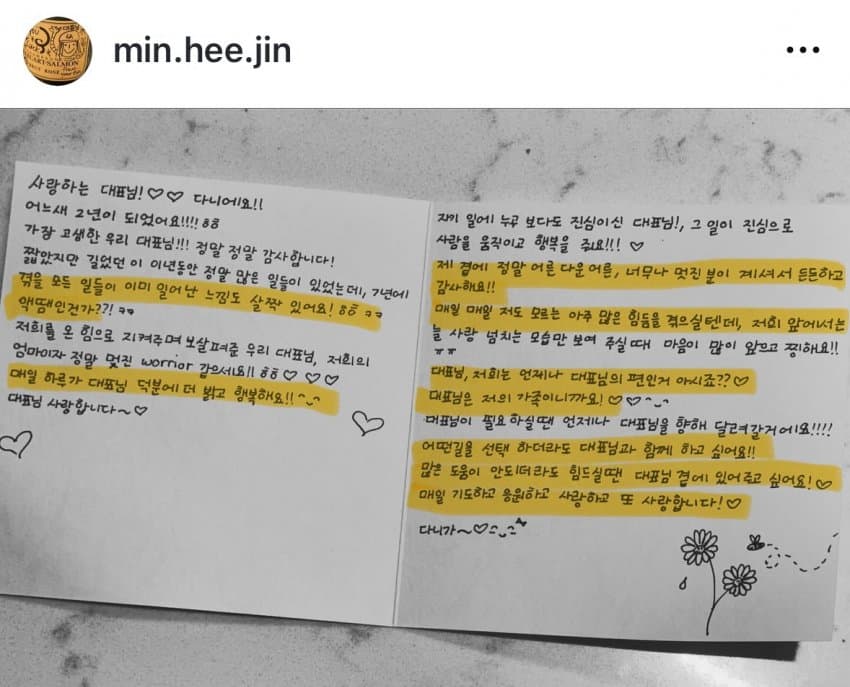 min.hee.jin
사랑하는 대표님!♡♡ 다니에요!!
어느새 2년이 되었어요!!!! ㅎㅎ
가장 고생한 우리 대표님!!! 정말 정말 감사합니다!
짧았지만 길었던 이 이년동안 정말 많은 일들이 있었는데, 7년에
겪을 모든 일들이 이미 일어난 느낌도 살짝 있어요! ㅎㅎ ㅋㅋ
액땜인건가??! ㅋㅋ
저희를 온 힘으로 지켜주며 보살펴준 우리 대표님, 저희의
엄마이자 정말 멋진 worrior 같으세요!! ㅎㅎ♡ ♡ ♡
매일 하루가 대표님 덕분에 더 밝고 행복해요!! ^◡^
대표님 사랑합니다~♡
자기 일에 누구 보다도 진심이신 대표님!, 그 일이 진심으로
사람을 움직이고 행복을 줘요!!! ♡
제 곁에 정말 어른 다운 어른, 너무나 멋진 분이 계셔서 든든하고
감사해요!!
매일 매일 저도 모르는 아주 많은 힘듦을 겪으실텐데, 저희 앞에서는
늘 사랑 넘치는 모습만 보여 주실때 마음이 많이 앞으고 찡해요!!
ㅠㅠ
대표님, 저희는 언제나 대표님의 편인거 아시죠??♡
대표님은 저의 가족이니까요!♡♡^◡^
대표님이 필요하실땐 언제나 대표님을 향해 달려갈거에요!!!!
어떤길을 선택 하더라도 대표님과 함께 하고 싶어요!!
많은 도움이 안되더라도 힘드실땐 대표님 곁에 있어주고 싶어요!♡
매일 기도하고 응원하고 사랑하고 또 사랑합니다!♡
다니가~♡